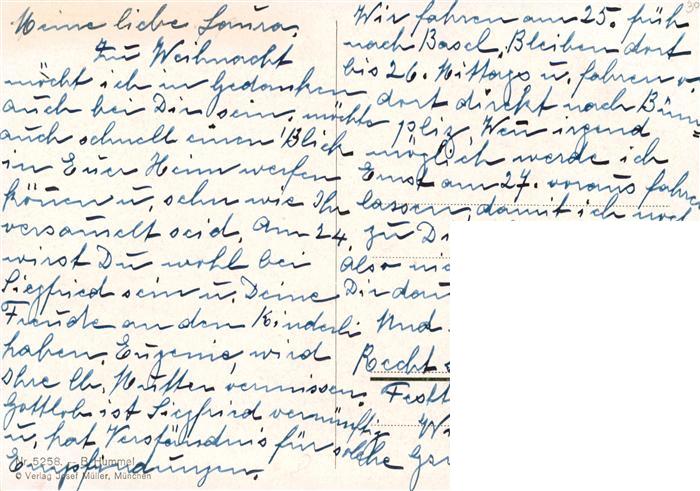 Meine liebe Laura.
Zu Weihnacht
möcht ich in Gedanken
auch bei Dir sein, möchte
auch schnell einen Blick
in Euer Heim werfen
können u. sehn wie Ihr
versamelt seid. Am 24.
wirst Du wohl bei
Siegfried sein u. Deine
Freude an den Kinderli
haben. Eugenie wird
Ihre lb. Mutter vermissen.
Gottlob ist Siegfried vernünftig
u. hat Verständnis für solche
Empfindungen.
Nr. 5258. — B. Hummel
© Verlag Josef Müller, München
Wir fahren am 25. früh
nach Basel, Bleiben dort
bis 26. Mittags u. fahren v
dort direkt nach Büm
pliz. Wen irgend
möglich werde ich
Ernst am 27. voraus fahre
lassen, damit ich noch
zu Di
Also
Dir
Und
Recht
Festt